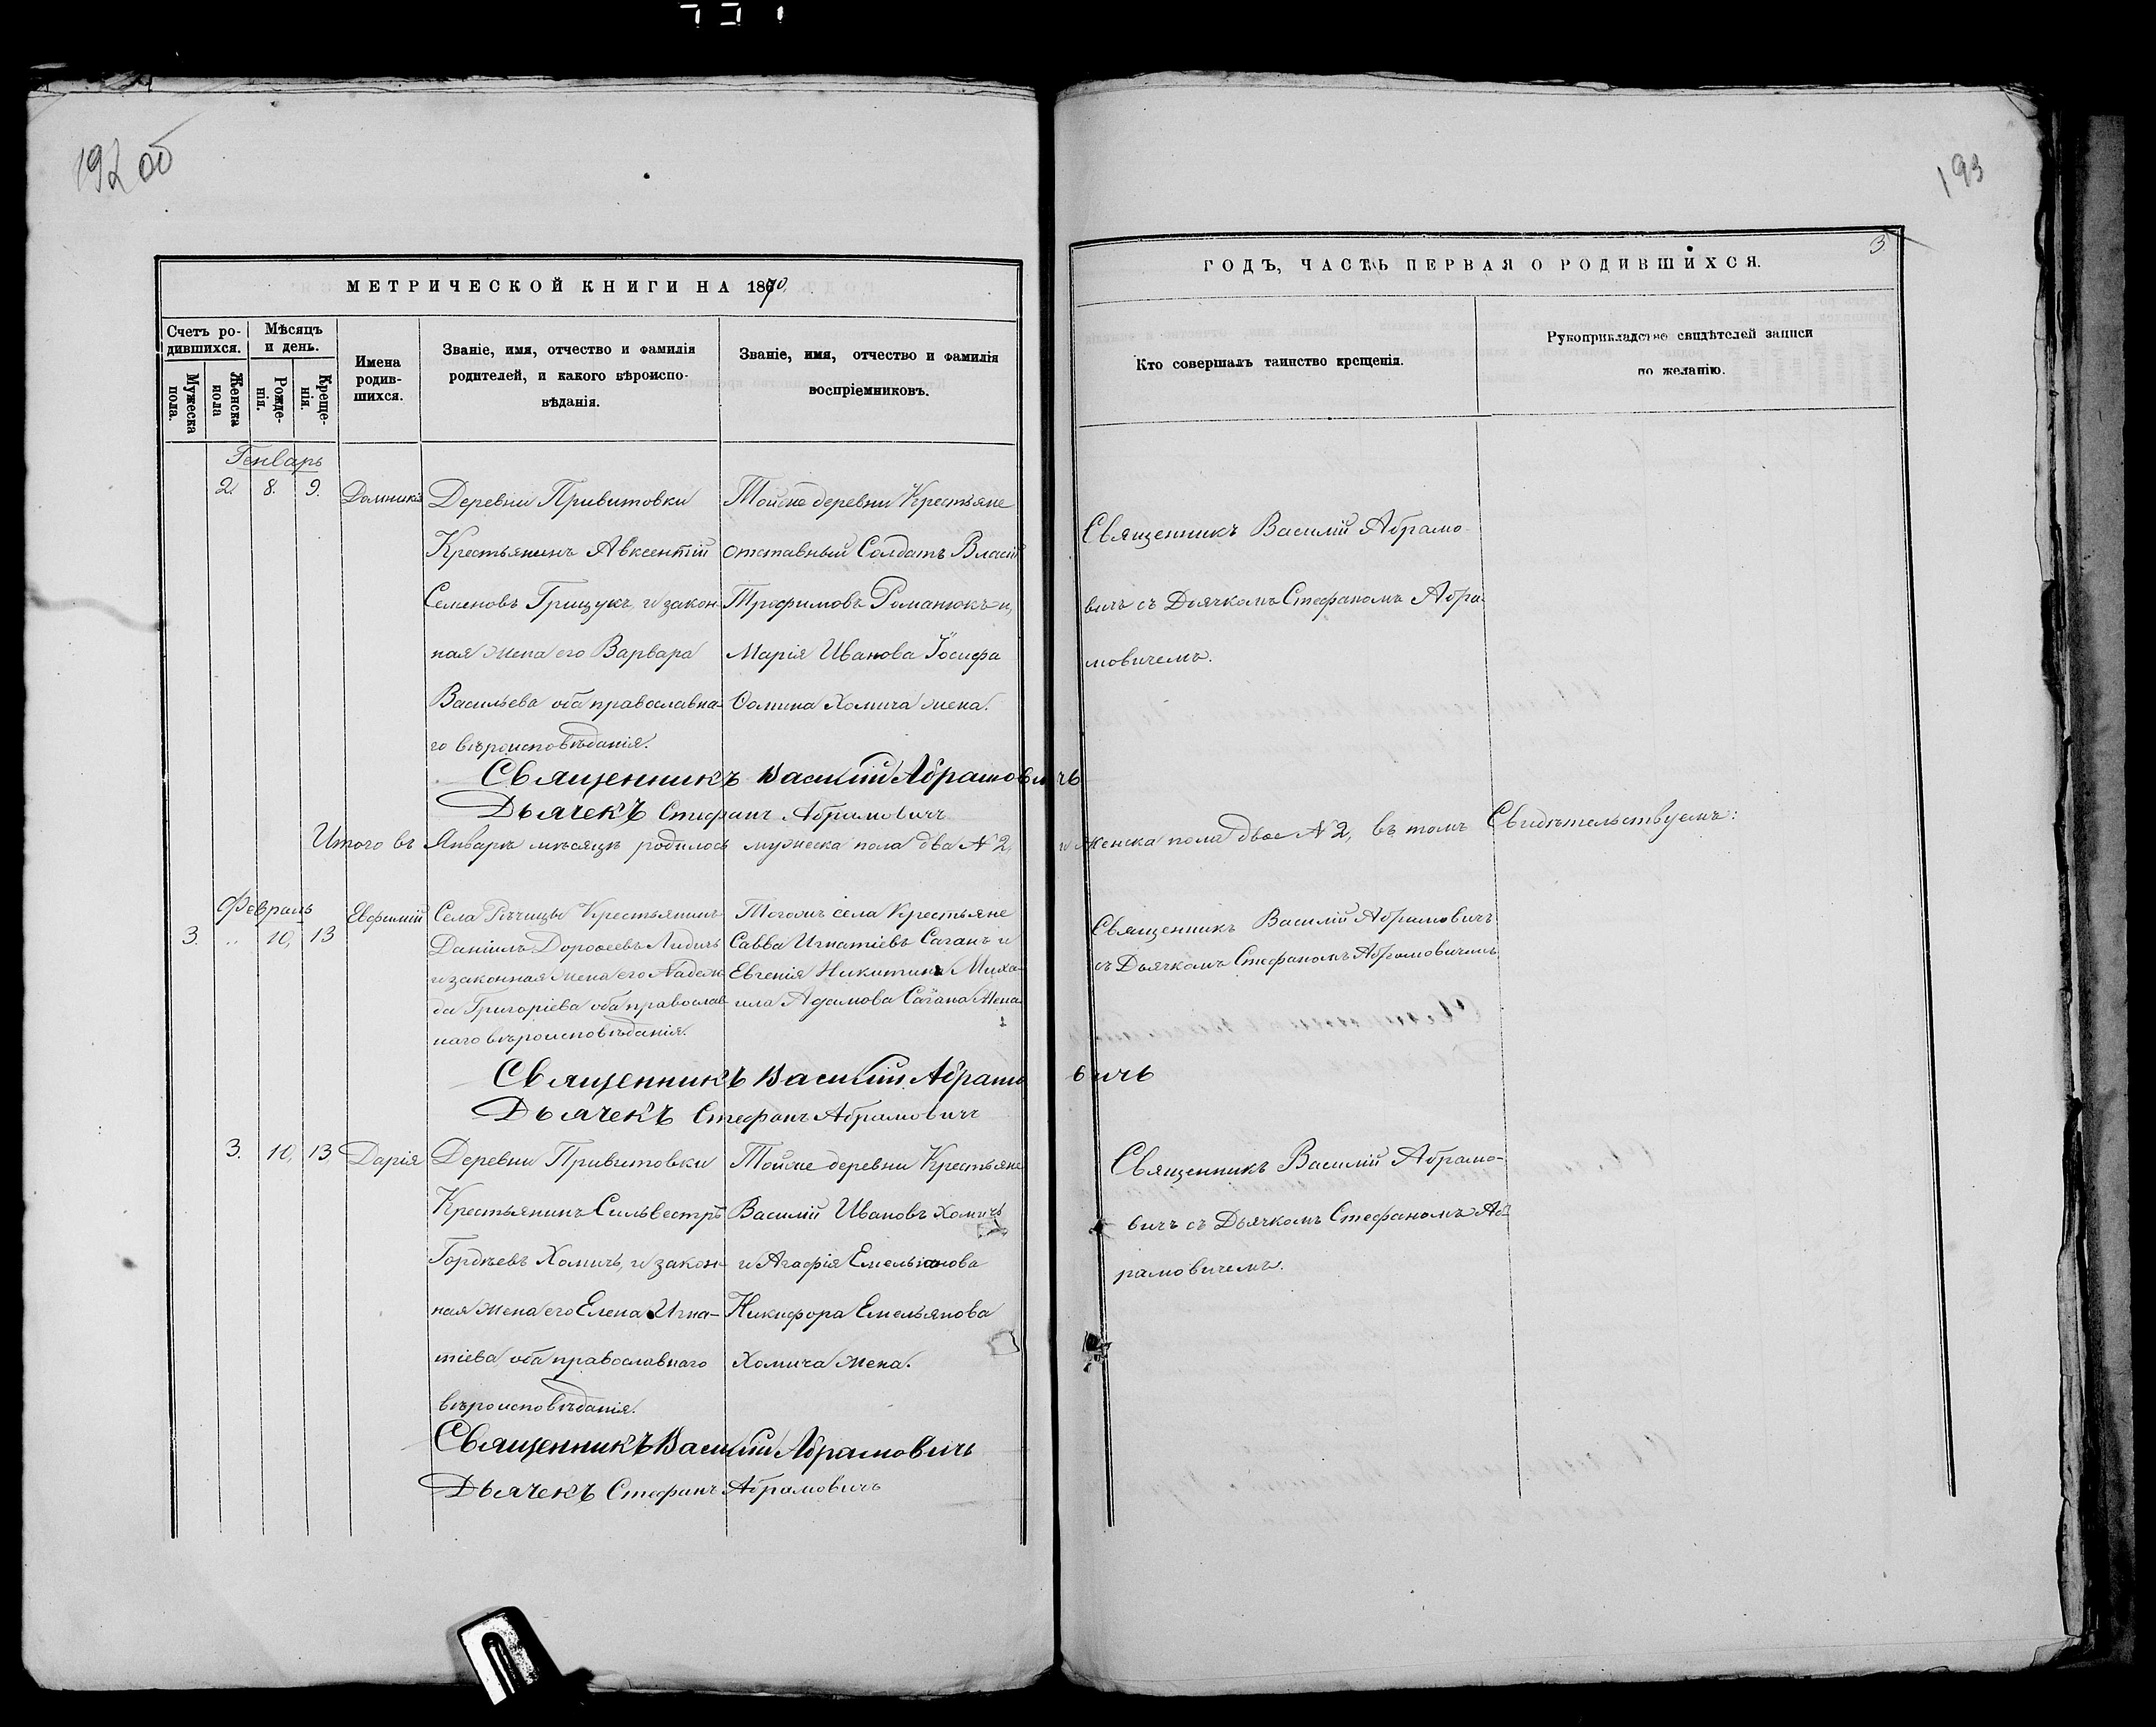 192 об
193
3
МЕТРИЧЕСКОЙ КНИГИ НА 1870
ГОДЪ, ЧАСТЬ ПЕРВАЯ О РОДИВШИХСЯ.
Счетъ ро-
дившихся.
Мужеска
пола.
Женска
пола
Мѣсяцъ
и день.
Рожде-
нія.
Креще-
нія.
Имена
родив-
шихся.
Званіе, имя, отчество и фамилія
родителей, и какого вѣроиспо-
вѣданія.
Званіе, имя, отчество и фамилія
воспріемниковъ.
Кто совершалъ таинство крещенія.
Рукоприкладство свидѣтелей записи
по желанію.
Генварь
2. 8. 9.
Домникія
Деревни Привитовки
Крестьянинъ Авксентій
Семеновъ Грищукъ, и закон-
ная жена его Варвара
Васильева оба православна-
го вѣроисповѣданія.
Тойже деревни Крестьяне
отставный Солдатъ Власій
Трофимовъ Романюкъ и,
Марія Иванова Іосифа
Ѳомина Хомича жена.
Священникъ Василій Абрамо-
вичъ съ Дьячкомъ Стефаномъ Абра-
мовичемъ.
Священникъ Василій Абрамовичъ
Дьячекъ Стефанъ Абрамовичъ
Итого въ Январѣ мѣсяцѣ родилось мужеска пола два № 2, и женска пола двое № 2, въ томъ Свидѣтельствуемъ:
Февраль
3. „ 10, 13
Евфимій
Села Рѣчицы Крестьянинъ
Даніилъ Дороѳеевъ Лидичъ
и законная жена его Надеж-
да Григоріева оба православ-
наго вѣроисповѣданія.
Тогожъ села Крестьяне
Савва Игнатіевъ Саганъ и
Евгенія Никитина Миха-
ила Адамова Сагана жена
Священникъ Василій Абрамовичъ
съ Дьячкомъ Стефаномъ Абрамовичемъ
Священникъ Василій Абрамовичъ
Дьячекъ Стефанъ Абрамовичъ
3. 10, 13
Дарія
Деревни Привитовки
Крестьянинъ Сильвестръ
Гордѣевъ Хомичъ, и закон-
ная жена его Елена Игна-
тіева, оба православнаго
вѣроисповѣданія.
Тойже деревни Крестьяне
Василій Ивановъ Хомичъ
и Агафія Емельянова
Никифора Емельянова
Хомича жена.
Священникъ Василій Абрамо-
вичъ съ Дьячкомъ Стефаномъ Аб-
рамовичемъ.
Священникъ Василій Абрамовичъ
Дьячекъ Стефанъ Абрамовичъ